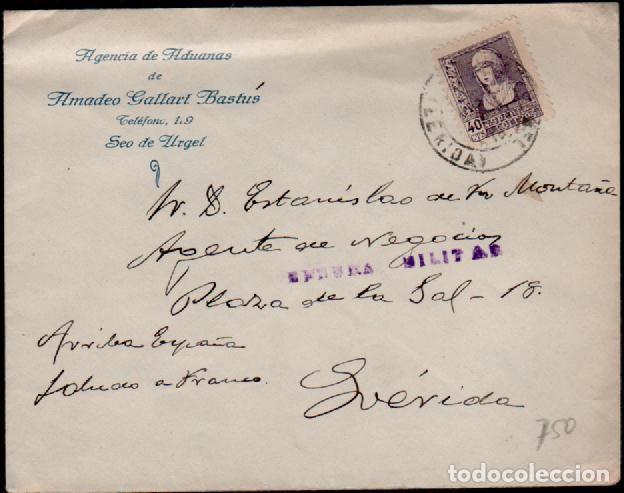 Agencia de Aduanas
de
Amadeo Gallart Bastús
Teléfono, 1.9
Seo de Urgel
40
(LERIDA)
D. Estanislao de Montaña
Agente de Negocios
MILITAR
Plaza de la Sal - 18.
Arriba España
Saludo a Franco.
Lérida
750
todocoleccion